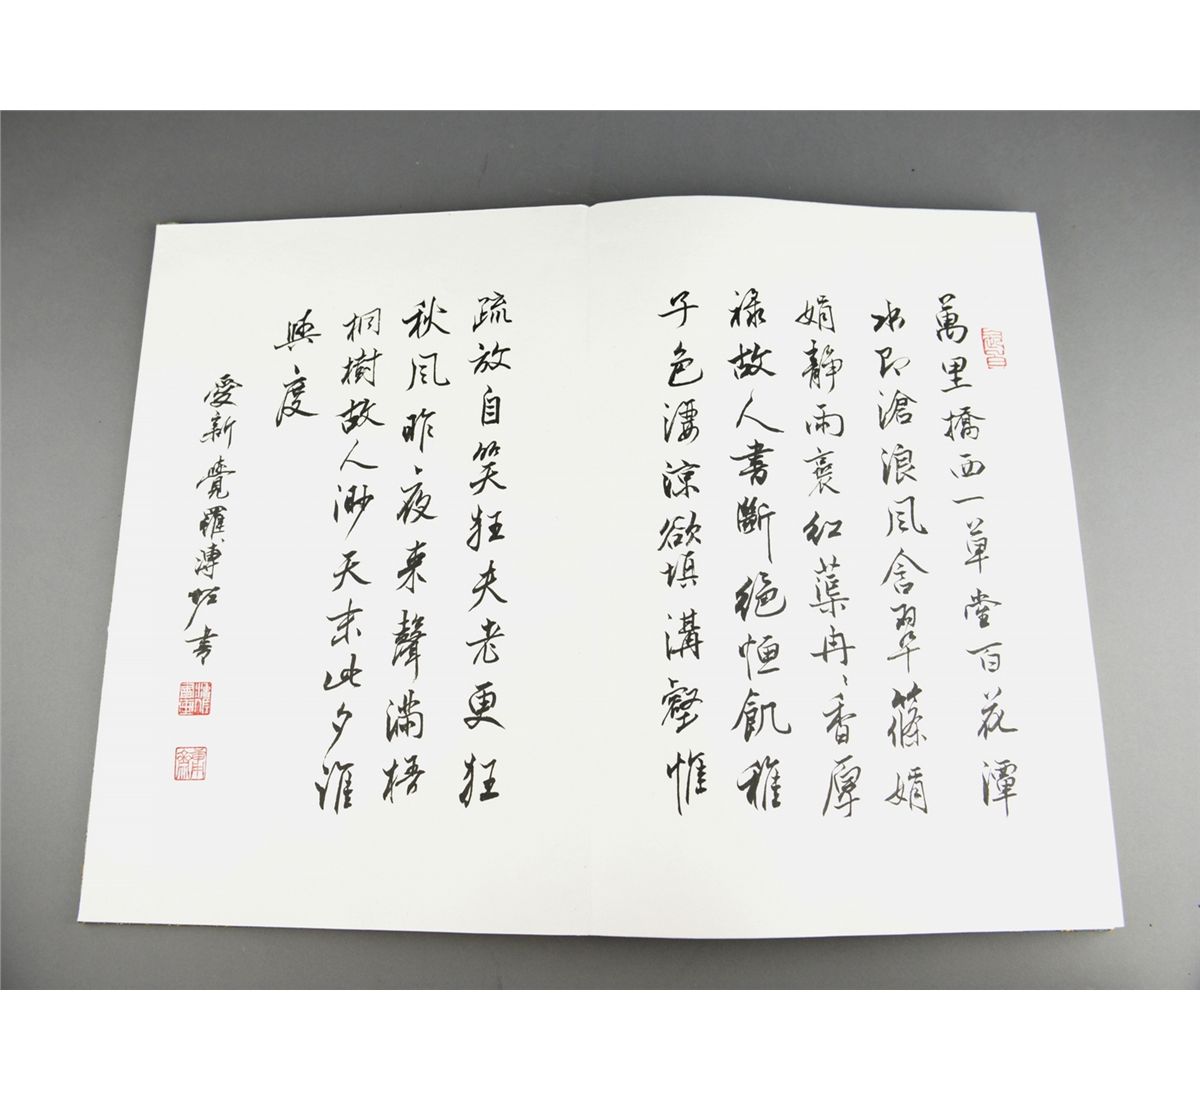 萬里橋西一草堂百花潭
水即滄浪風含翠篠娟
娟靜雨裛紅蕖冉〻香厚
祿故人書斷絕恆飢稚
子色淒涼欲填溝壑惟
疏放自笑狂夫老更狂
秋風昨夜來聲滿梧
桐樹故人渺天末此夕誰
與度
愛新覺羅溥佐書
庸齋